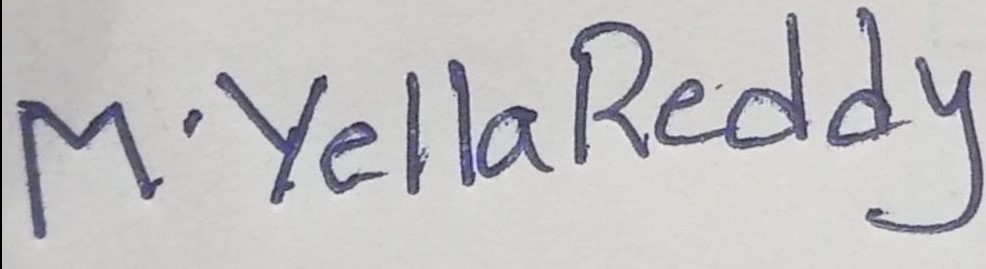 M. Yella Reddy